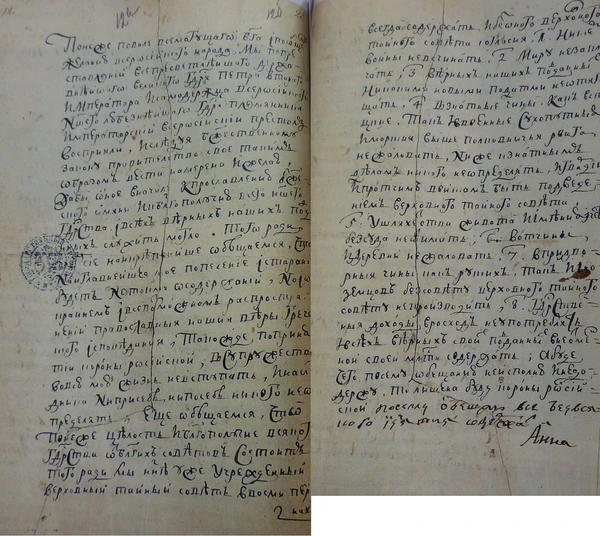 12 128
Понеже поволе всемогущаго Бга и по общему
желанию всероссийского народа, Мы попре
ставлении всепресветлейшаго держа
внейшаго великаго Гдря Петра второго
Императора и самодержца всероссийского
ншего любезнейшаго Гдря племянника
Императорский всеросийский престолъ
восприяли, и следуя божественному
закону правительство свое такимъ
образомъ вести намерена и желаю,
дабы оное вначале кпрославлению бже
ского имяни и кблгополучию всего ншего
гдрства, и всѣхъ вѣрныхъ нашихъ под
данныхъ служить могло. Того ради
сие наикрепчайше обещаемся, что
наиглавнейшее мое попечение и старание
будетъ не токмо о содержании, но и о
крайнемъ и всевозможномъ распростра
нении православныя нашия вѣры грече
ского исповедания, такожде, попринят
тии короны росийской, в супружество
во всю мою жизнь не вступать, и наслед
дника ни при себѣ, ни по себѣ никого не о
пределять, Еще обещаемся, что
понеже целость и блгополучие всякого
гдрства от блгихъ советовъ состоитъ
того ради мы ныне уже учрежденный
верховный тайный советъ в восми пер
сонах
всегда содержать, и без оного верховного
тайного совѣта согласия, 1 Ни с кемъ
воины не всчинать, 2 Миру не заклю
чать, 3 Вѣрныхъ нашихъ подданных
никакими новыми податми не отяго
щать, 4 Взнатные чины, какъ в ста
цкие, такъ и в военные сухопутные
и морские выше полковничья ранга
не жаловать, ниже к знатнымъ
дѣламъ никого не определять, и гвардии
и протчимъ войскам быть под ведени
ем верховного тайного совета
5. У шляхетства живота и имения и чести
без суда не отимать, 6. вотчины
и деревни не жаловать, 7. в придвор
ныя чины какъ русских, такъ и ино
земцовъ без совету верховного тайного
совѣту не производить, 8. гдрствен
ныя доходы в росходъ не употреблять
и всѣхъ вѣрныхъ своихъ подданныхъ в неот
менной своей млсти содержать; а буде
чего по сему обещанию не исполню и не до
держу, то лишена буду короны росий
ской по сему обещаю все без всяк
ого изятия содержать
Анна